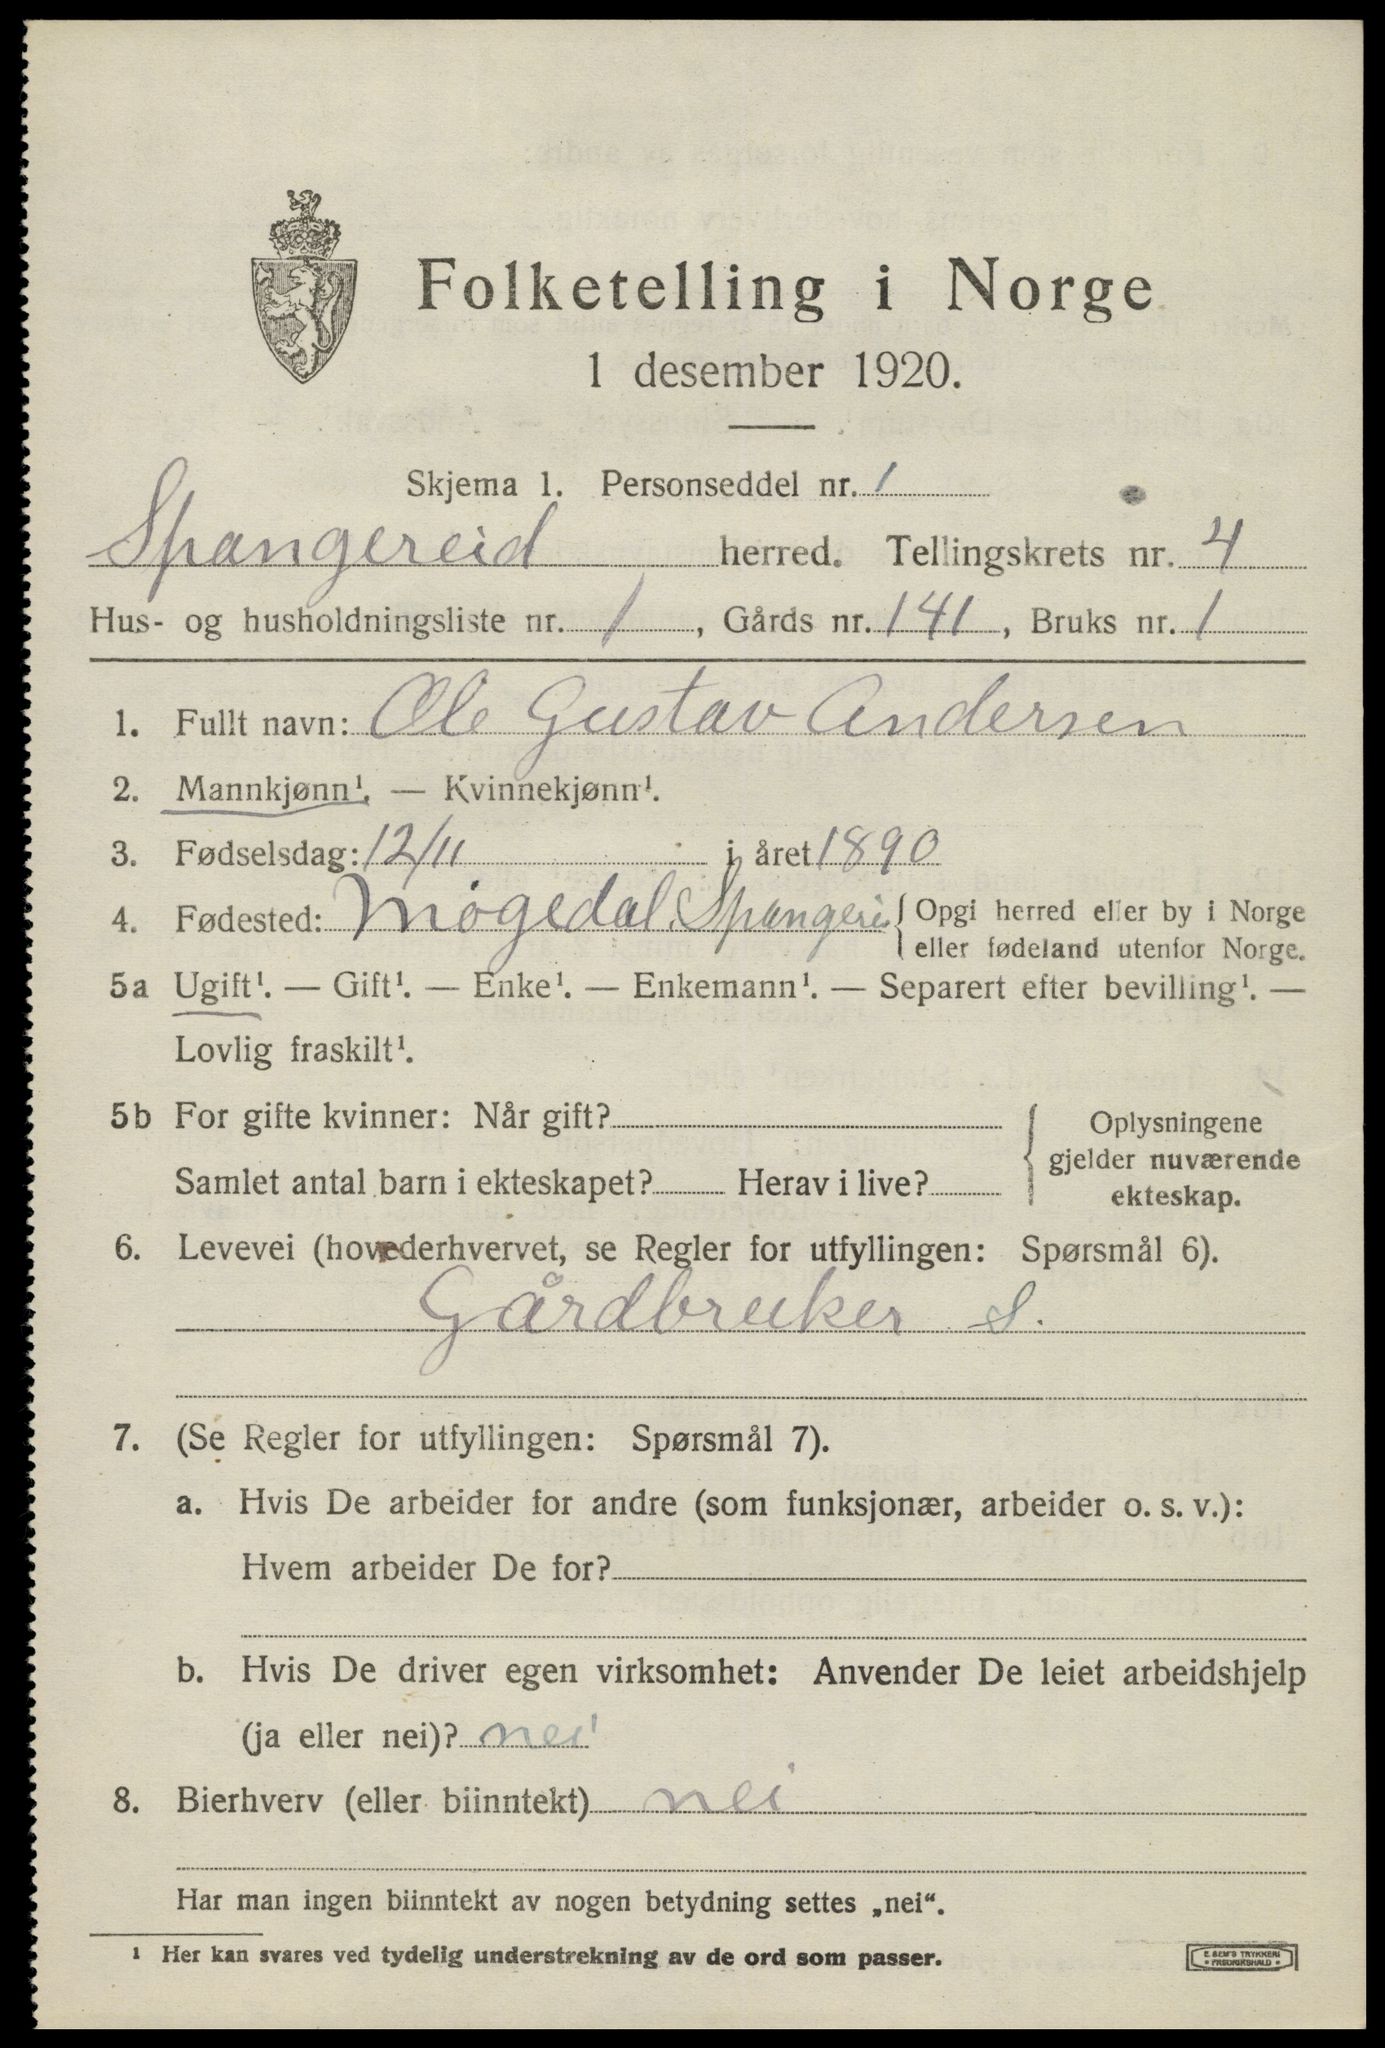 Folketelling i Norge
1 desember 1920.
Skjema 1. Personseddel nr. 1
Spangereid herred. Tellingskrets nr. 4
Hus- og husholdningsliste nr. 1, Gårds nr. 141, Bruks nr. 1
1. Fullt navn: Ole Gustav Andersen
2. Mannkjønn¹. — Kvinnekjønn¹.
3. Fødselsdag: 12/11 i året 1890
4. Fødested: Møgedal. Spangerei { Opgi herred eller by i Norge
eller fødeland utenfor Norge.
5a Ugift¹. — Gift¹. — Enke¹. — Enkemann¹. — Separert efter bevilling¹. —
Lovlig fraskilt¹.
5b For gifte kvinner: Når gift? { Oplysningene
gjelder nuværende
Samlet antal barn i ekteskapet? Herav i live? ekteskap.
6. Levevei (hovederhvervet, se Regler for utfyllingen: Spørsmål 6).
Gårdbruker S.
7. (Se Regler for utfyllingen: Spørsmål 7).
a. Hvis De arbeider for andre (som funksjonær, arbeider o. s. v.):
Hvem arbeider De for?
b. Hvis De driver egen virksomhet: Anvender De leiet arbeidshjelp
(ja eller nei)? nei
8. Bierhverv (eller biinntekt) nei
Har man ingen biinntekt av nogen betydning settes „nei“.
¹ Her kan svares ved tydelig understrekning av de ord som passer.
E. SEM'S TRYKKERI
• FREDRIKSHALD •